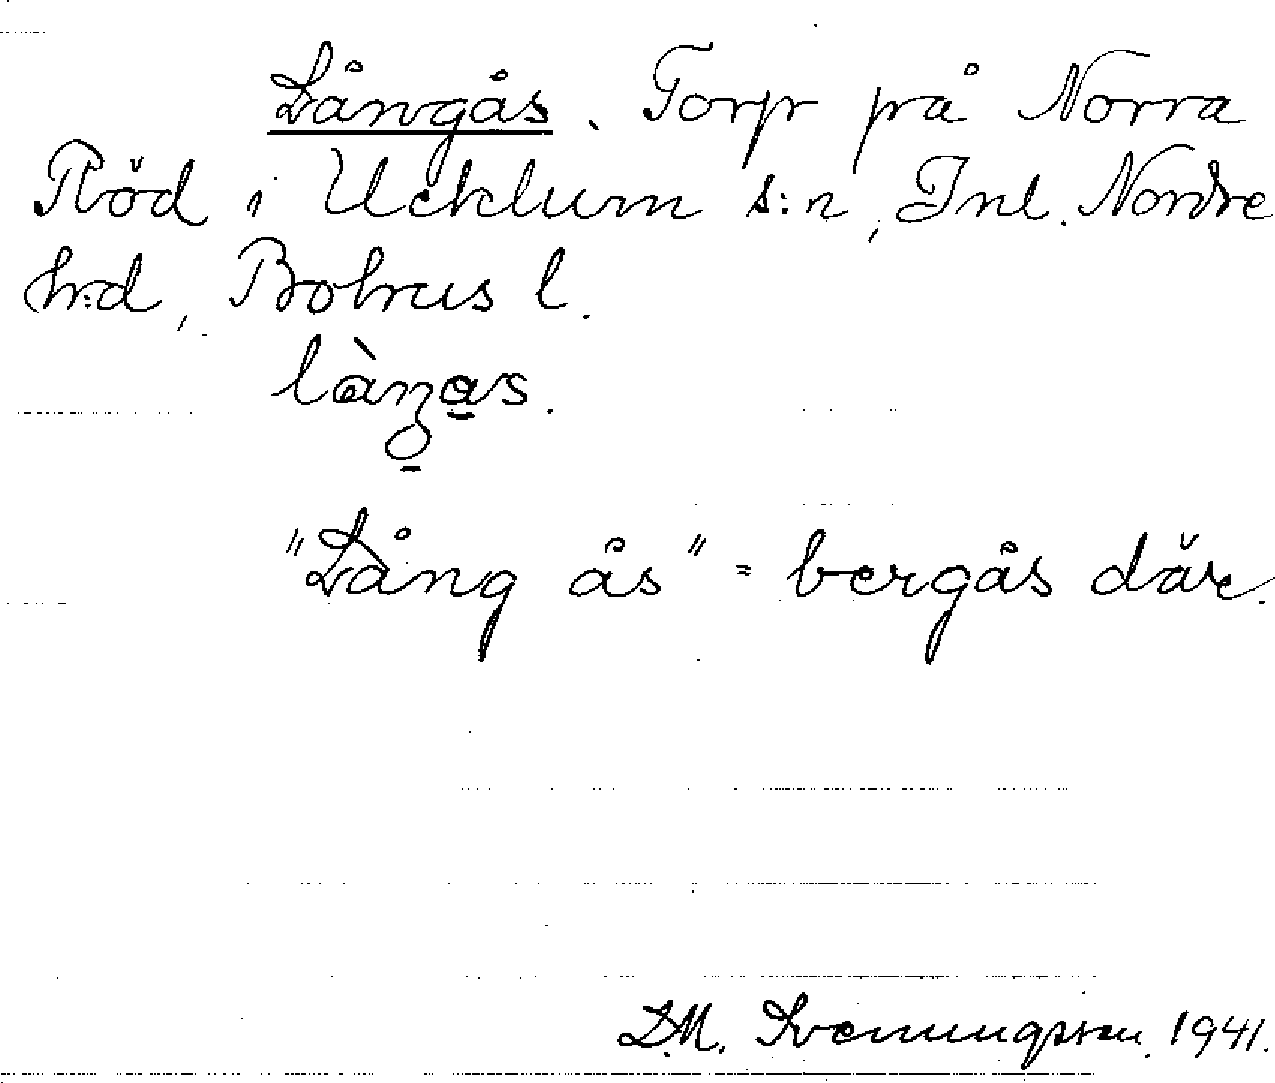 Långås. Torp på Norra
Röd i Ucklum s:n, Inl. Nordre
hrd, Bohus l.
"Lång ås" = bergås där.
D.M. Svenungsson. 1941.